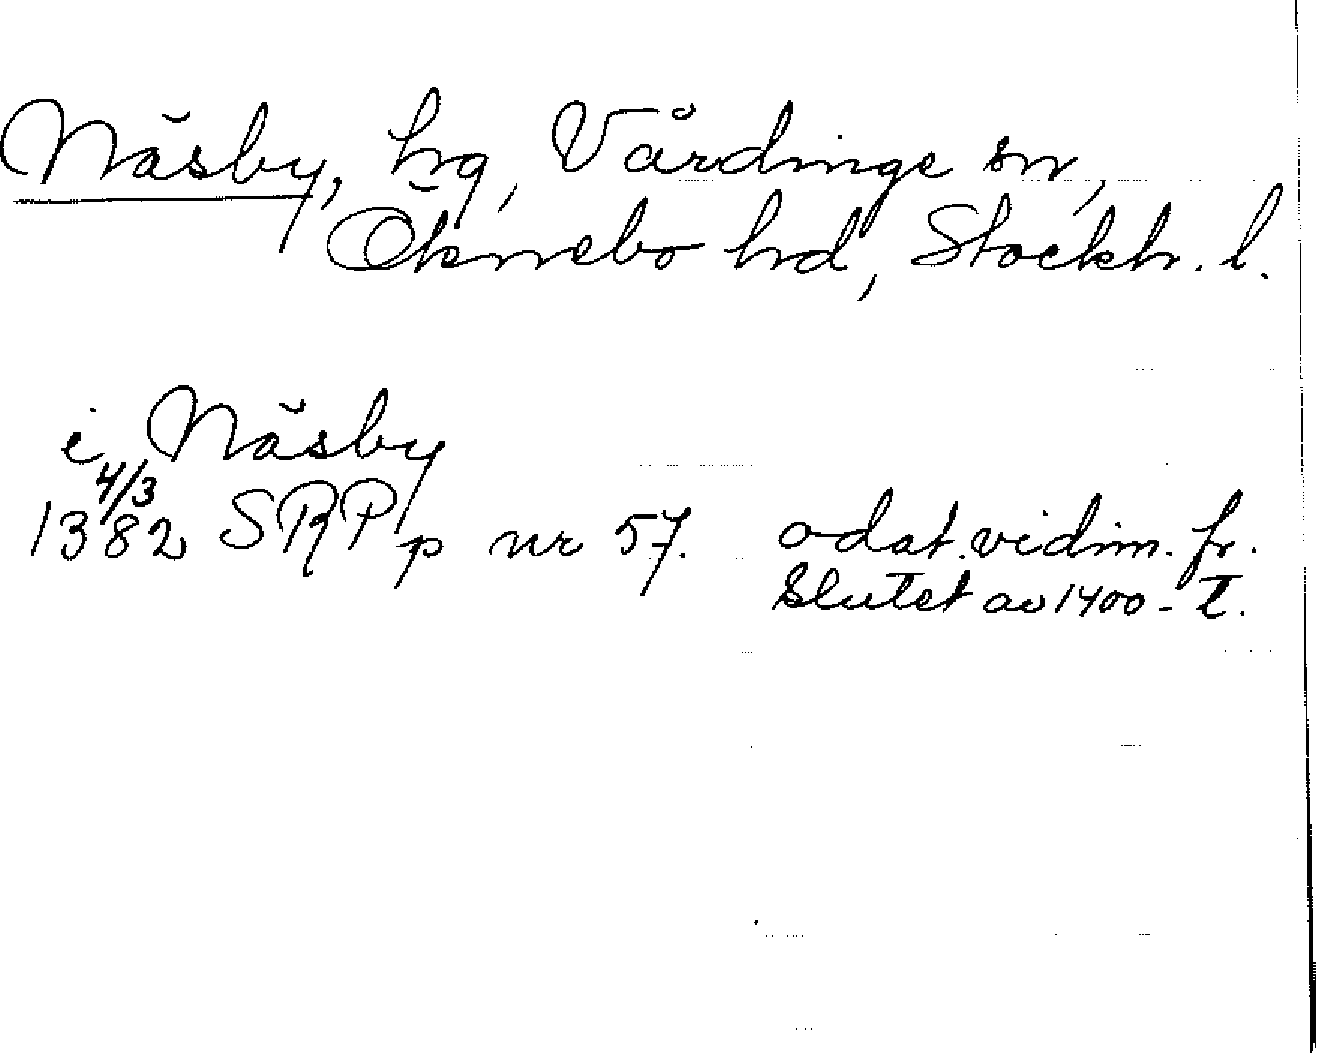 Näsby, hg, Vårdinge sn,
Öknebo hd, Stockh. l.
i Näsby
4/3
1382 SRPp nr 57. odat. vidim. fr.
slutet av 1400-t.